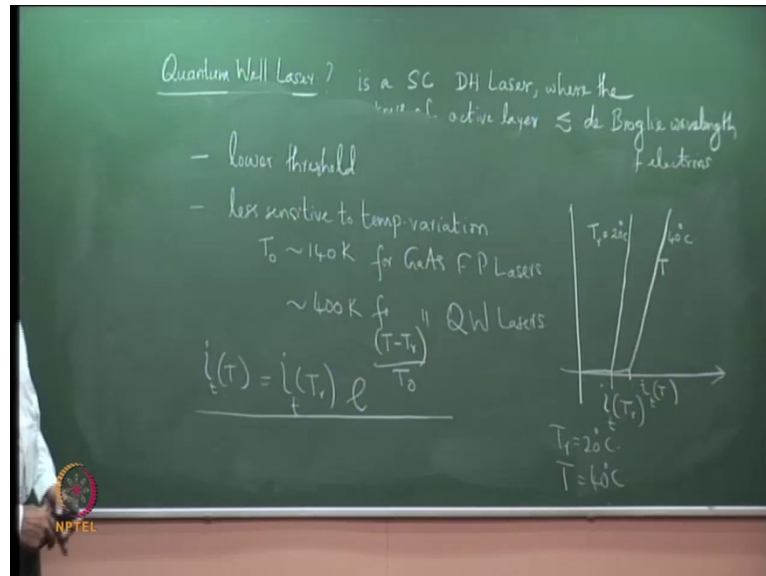 Quantum Well Laser? is a SC DH Laser, where the
active layer ≲ de Broglie wavelength
electrons
- lower threshold
- less sensitive to temp. variation
T₀ ~ 140K for GaAs FP Lasers
~ 400K for " QW Lasers
i_t(T) = i_t(T_r) e^((T-T_r)/T₀)
T_r = 20°C
40°C
T
i_t(T_r) i_t(T)
T_r = 20°C.
T = 40°C
NPTEL